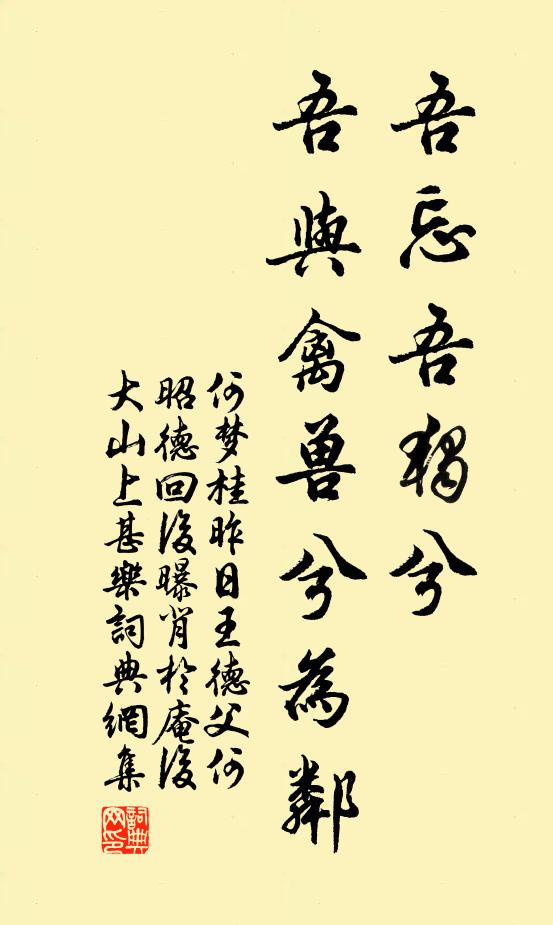 吾忘吾獨兮
吾與禽獸兮為鄰
何梦桂昨日王德父何
昭德回後曝肖於庵後
大山上甚樂詞典網集
詞典
网印